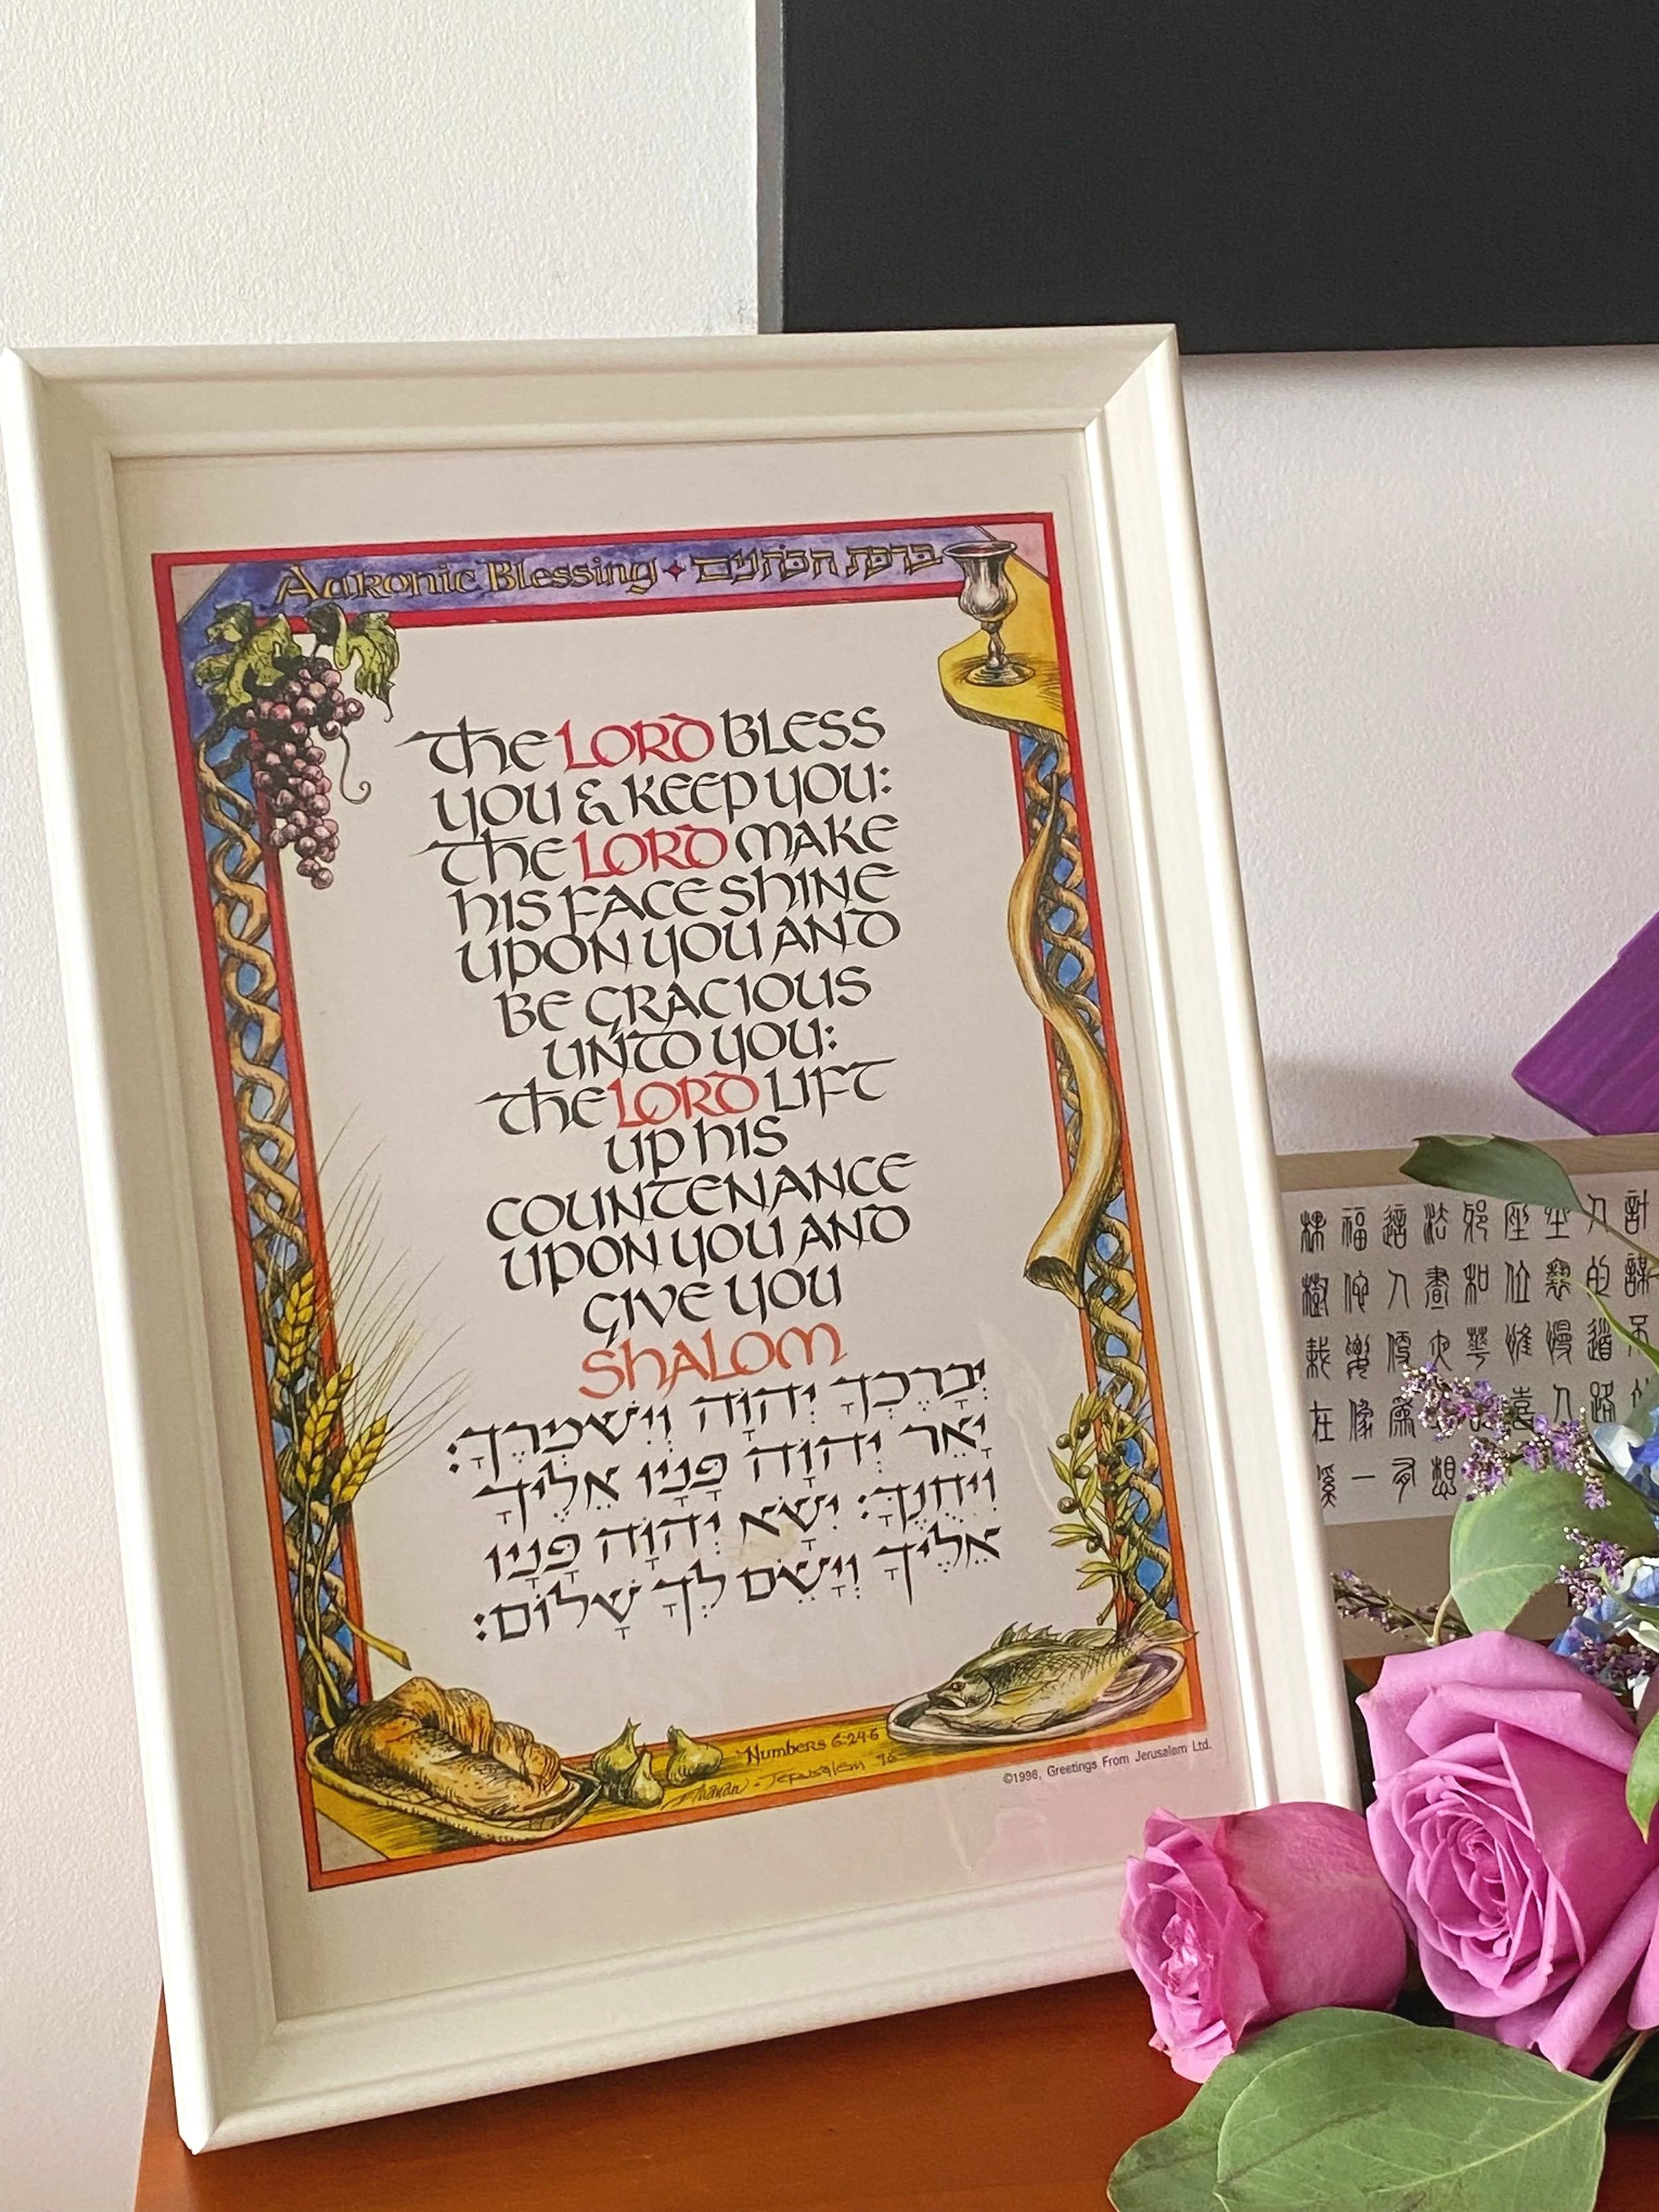 Aaronic Blessing ✦ ברכת הכהנים
The LORD BLESS
YOU & KEEP YOU:
The LORD MAKE
HIS FACE SHINE
UPON YOU AND
BE GRACIOUS
UNTO YOU:
The LORD LIFT
UP HIS
COUNTENANCE
UPON YOU AND
GIVE YOU
SHALOM
יְבָרֶכְךָ יְהוָֹה וְיִשְׁמְרֶךָ׃
יָאֵר יְהוָֹה פָּנָיו אֵלֶיךָ
וִיחֻנֶּךָּ׃ יִשָּׂא יְהוָֹה פָּנָיו
אֵלֶיךָ וְיָשֵׂם לְךָ שָׁלוֹם׃
Numbers 6:24-6
Jerusalem '96
©1996, Greetings From Jerusalem Ltd.
計謀不
人的道路
坐褻慢人
座位惟喜
耶和華
法晝夜想
這人便為有
福他要像一
棵樹栽在溪